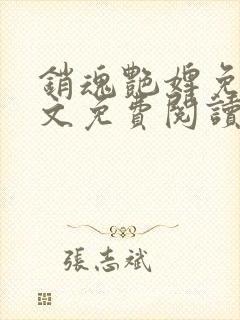 銷魂艷婢免
文免費閱讀
張志斌